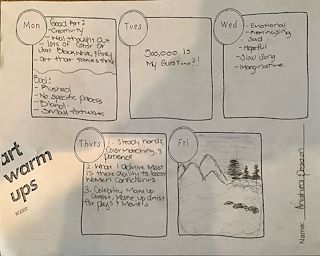 Mon
Good Art:
- Creativity
- Well thought out
- lots of color or
Just Black, White, & Grey
- art that transcends
Bad:
- Rushed
- No specific process
- Bland
- Small Artwork
Tues
500,000 is
My Guess...?!
Wed
- Emotional
- Reminiscing
- Sad
- Hopeful
- Slow Song
- Imaginative
Thurs
1. Steady hands,
Color Matching,
patience
2. What I Admire Most
is there ability to boost
Women Confidents
3. Celebrity Make up
Artist, Make up artist
for plays & Movies
Fri
art
warm
ups
WEEK
Name: